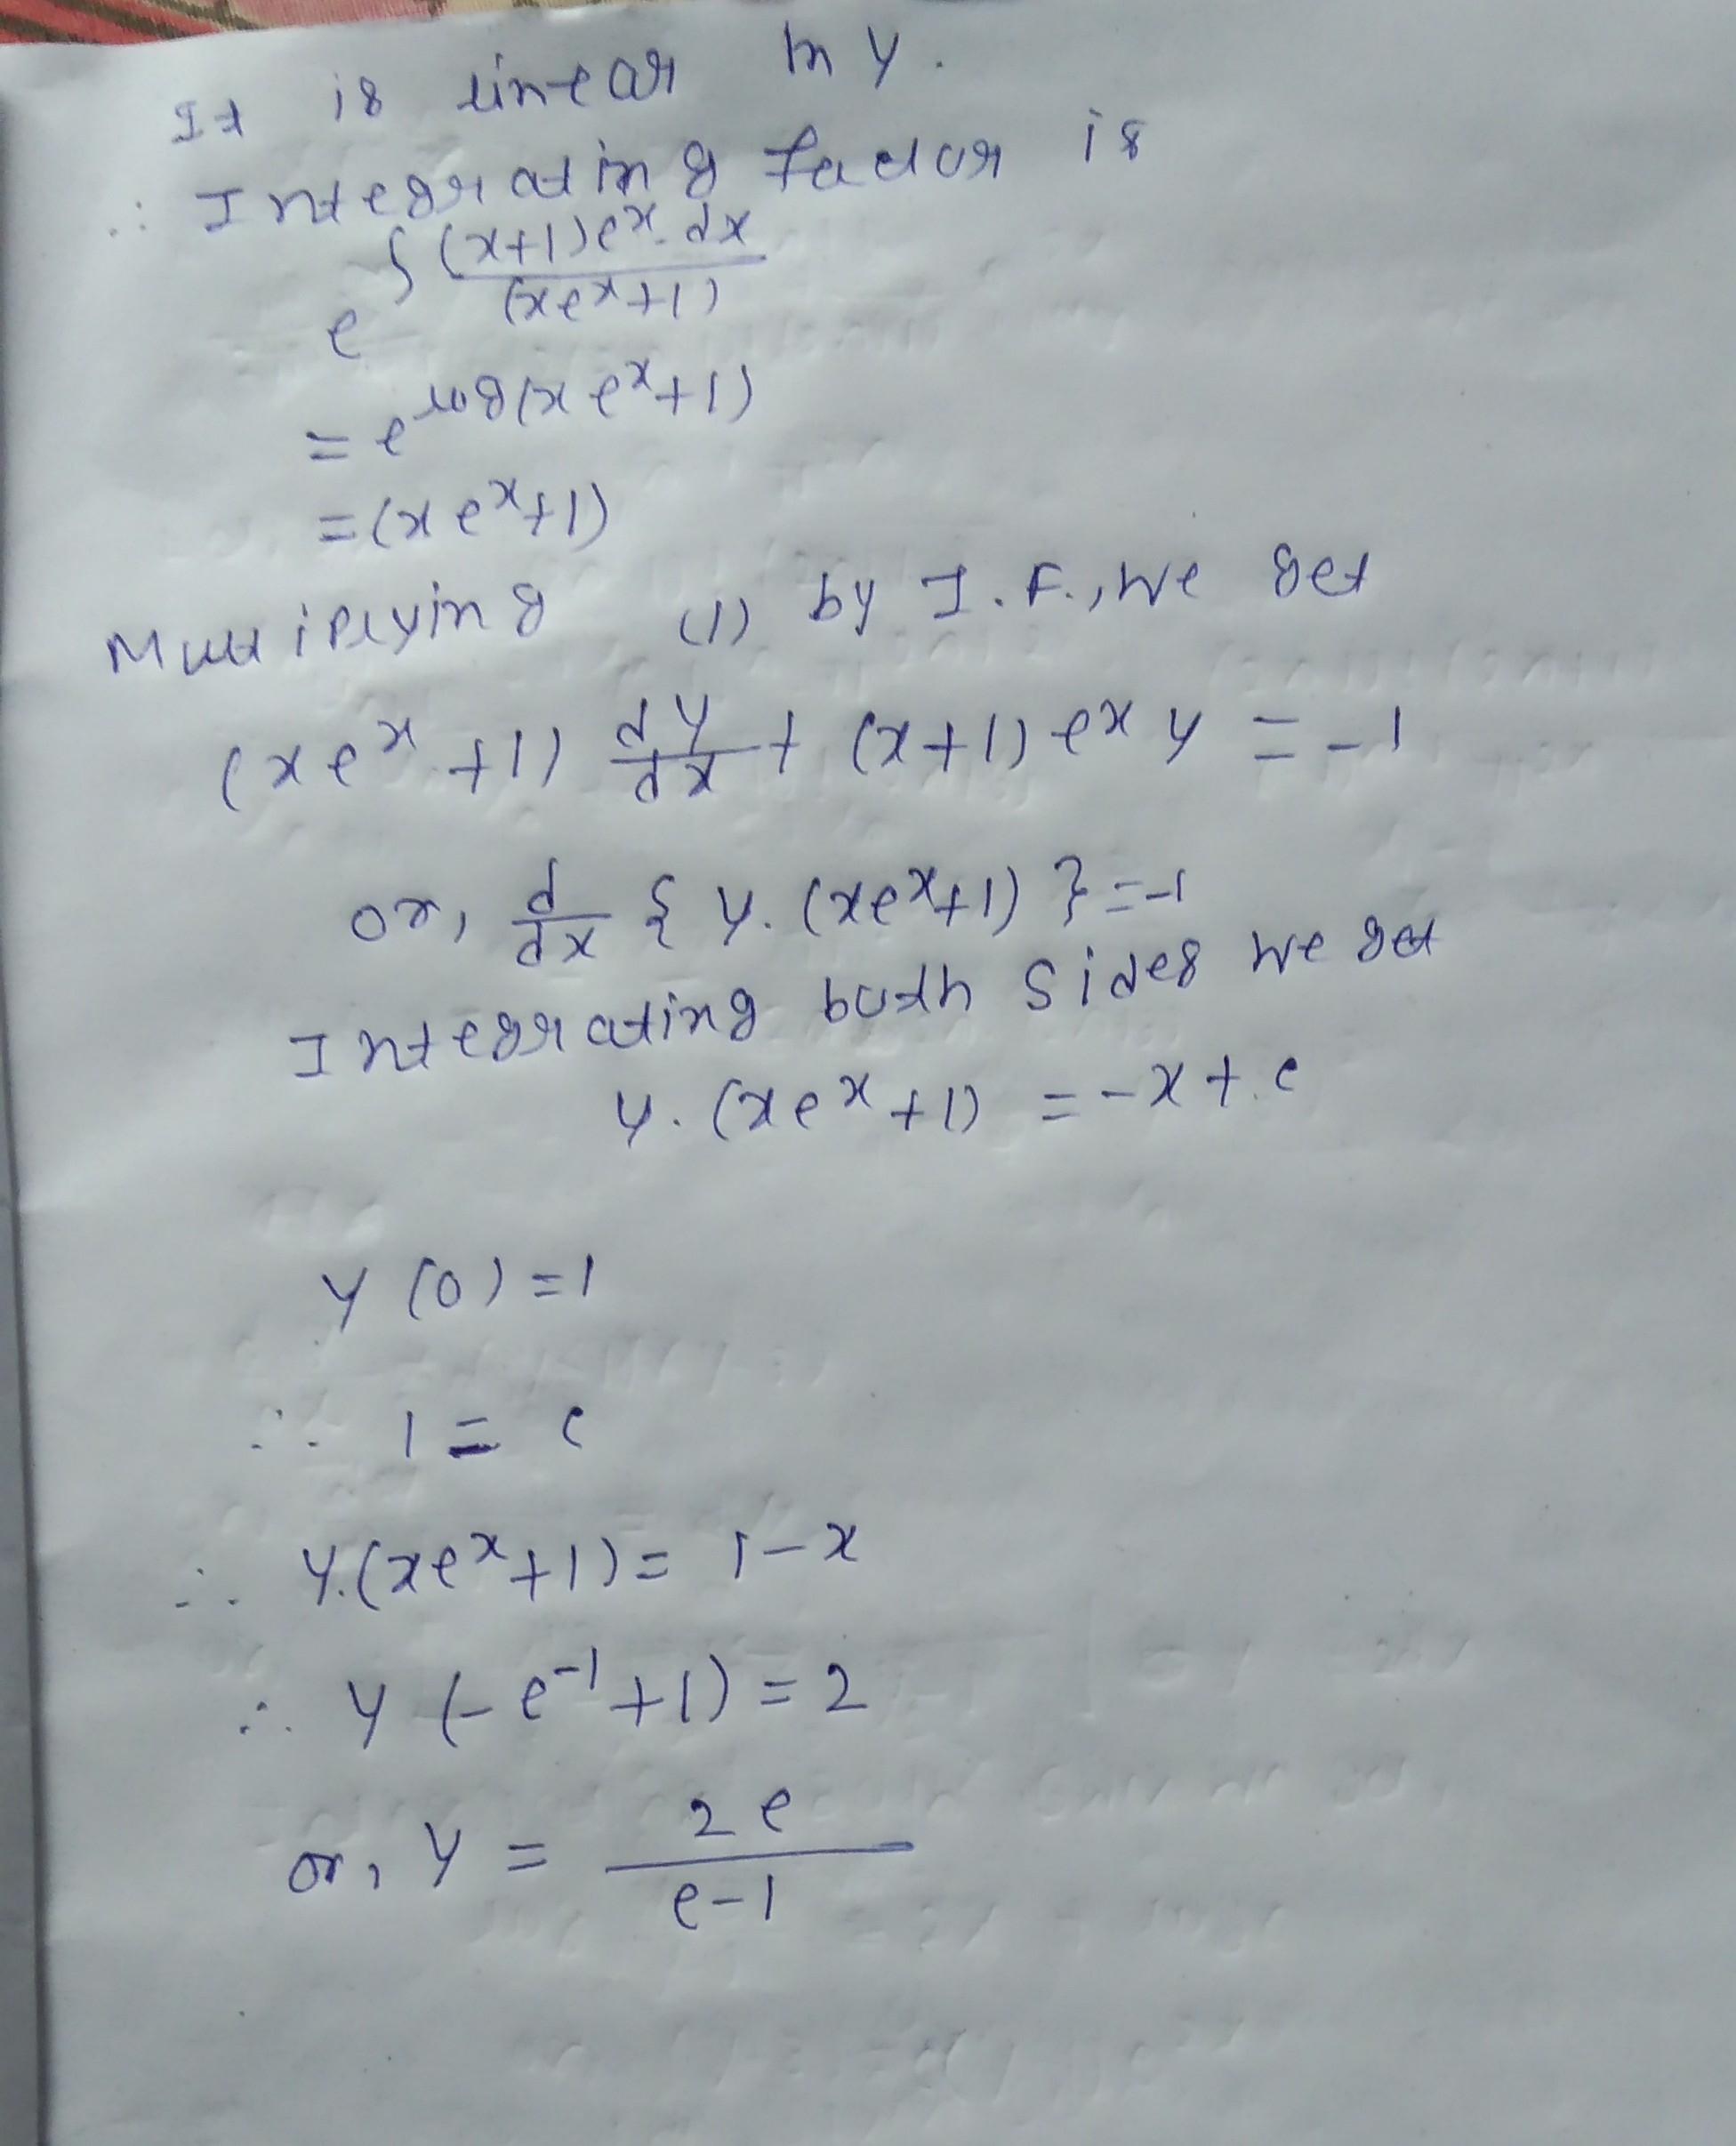 It is linear in y.
∴ Integrating factor is
e^∫ (x+1)e^x. dx / (xe^x+1)
= e^log(x e^x+1)
= (x e^x+1)
Multiplying (1) by I.F., we get
(xe^x +1) dy/dx + (x+1) e^x y = -1
or, d/dx { y. (xe^x+1) } = -1
Integrating both sides we get
y. (xe^x +1) = -x + c
y (0) = 1
∴ 1 = c
∴ y.(xe^x+1) = 1-x
∴ y (-e^-1 +1) = 2
or, y = 2e / e-1